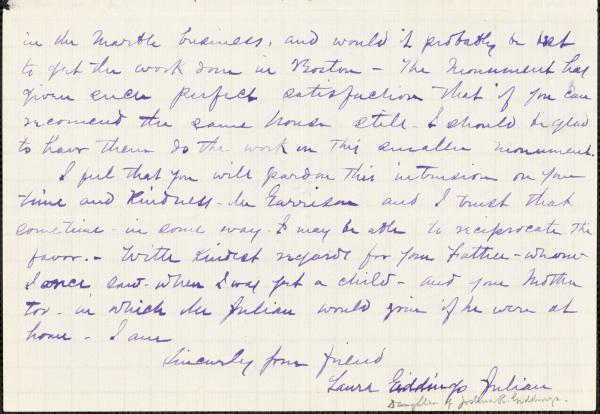 in the Marble business, and would it probably be best
to get the work done in Boston - The Monument has
given such perfect satisfaction that if you can
recomend the same house still - I should be glad
to have them do the work on this smaller monument.
I feel that you will pardon this intrusion on your
time and kindness - Mr Garrison and I trust that
sometime - in some way - I may be able to reciprocate the
favor. - With kindest regards for your Father - whom
I once saw - when I was yet a child - and your Mother
too - in which Mr Julian would join if he were at
home - I am
Sincerely your friend
Laura Giddings Julian
Daughter of Joshua R. Giddings.